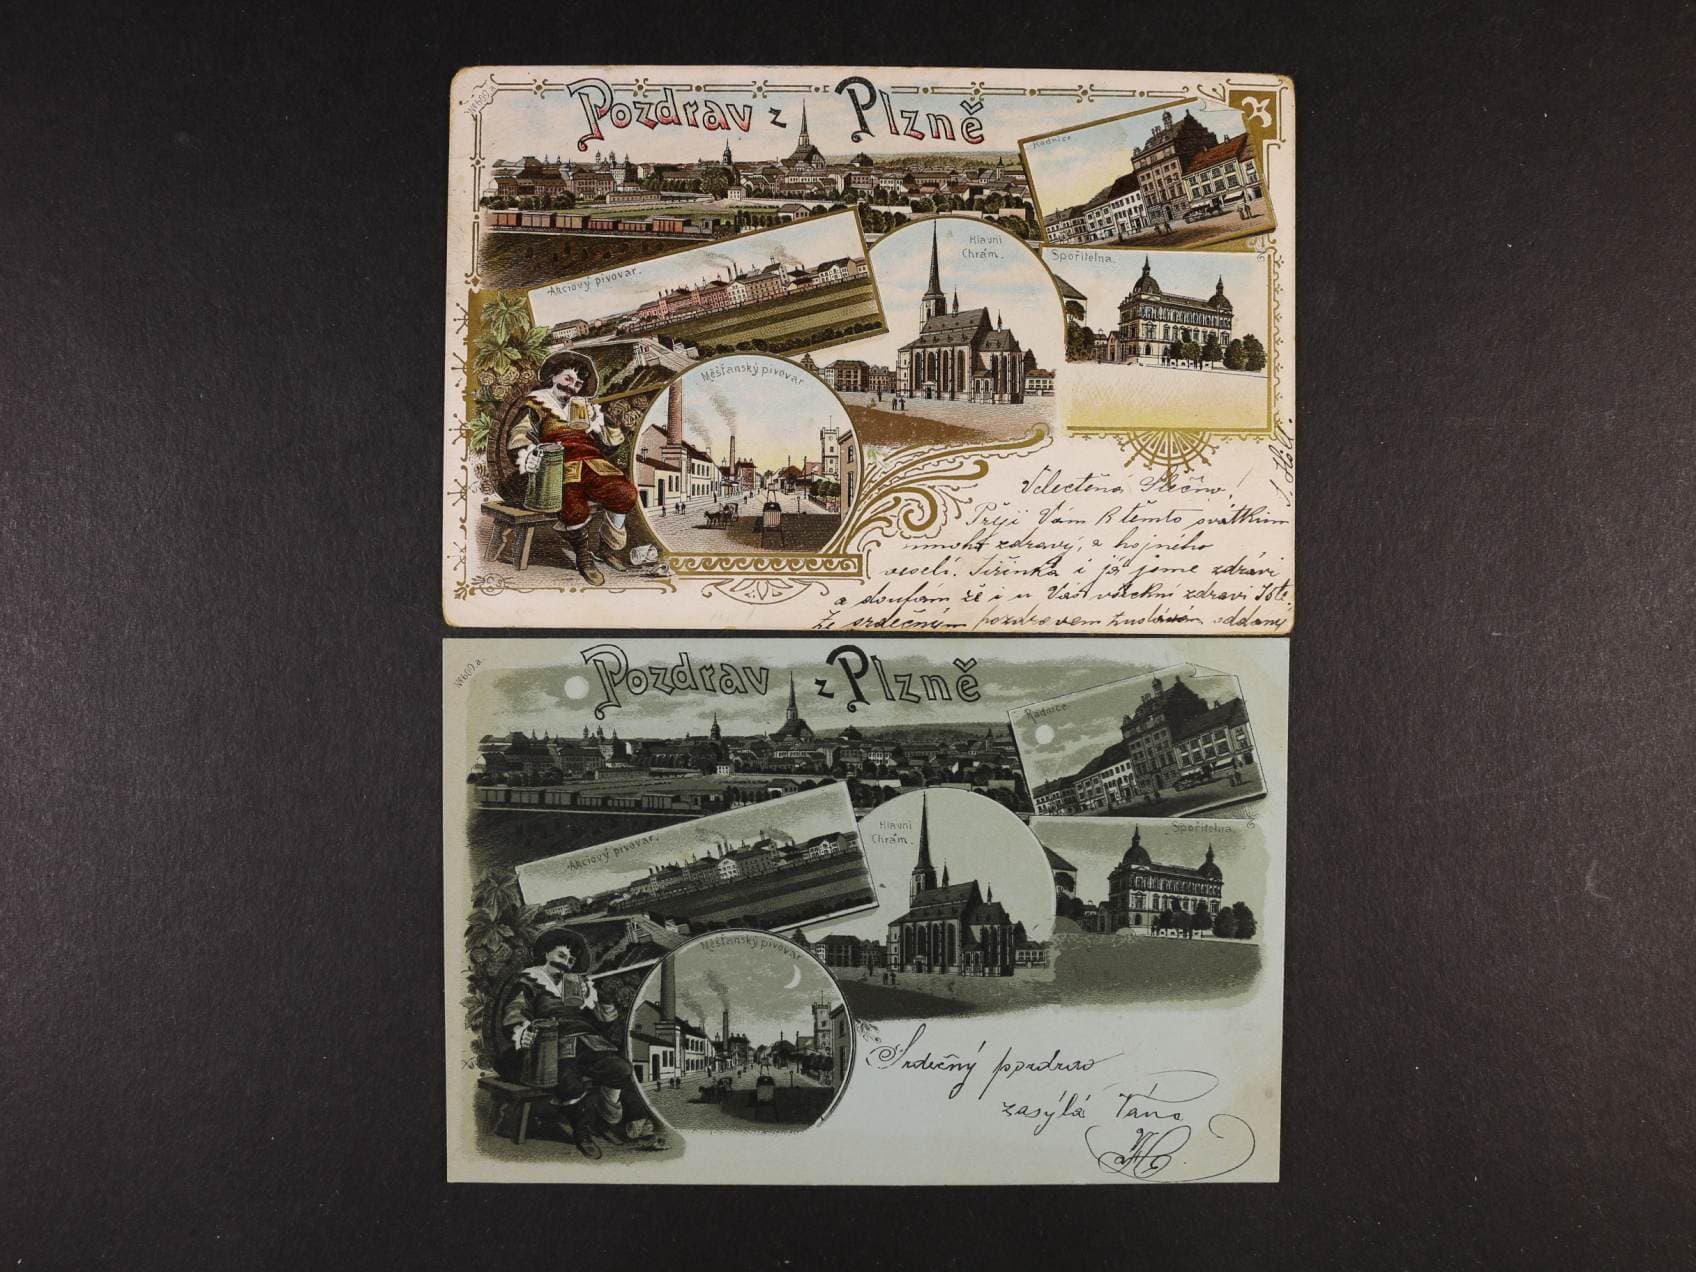 No 609 a.
Pozdrav z Plzně
Radnice
Akciový pivovar.
Hlavní
Chrám.
Spořitelna.
Měšťanský pivovar
Velectěná Slečno!
Přeji Vám k těmto svátkům
mnoho zdraví, a hojného
veselí. i já jsme zdrávi
a doufám že i u Vás všichni zdraví jste.
Ze srdečným pozdravem oddaný
No 609 a.
Pozdrav z Plzně
Radnice
Akciový pivovar.
Hlavní
Chrám.
Spořitelna.
Měšťanský pivovar
Srdečný pozdrav
zasýlá Vám